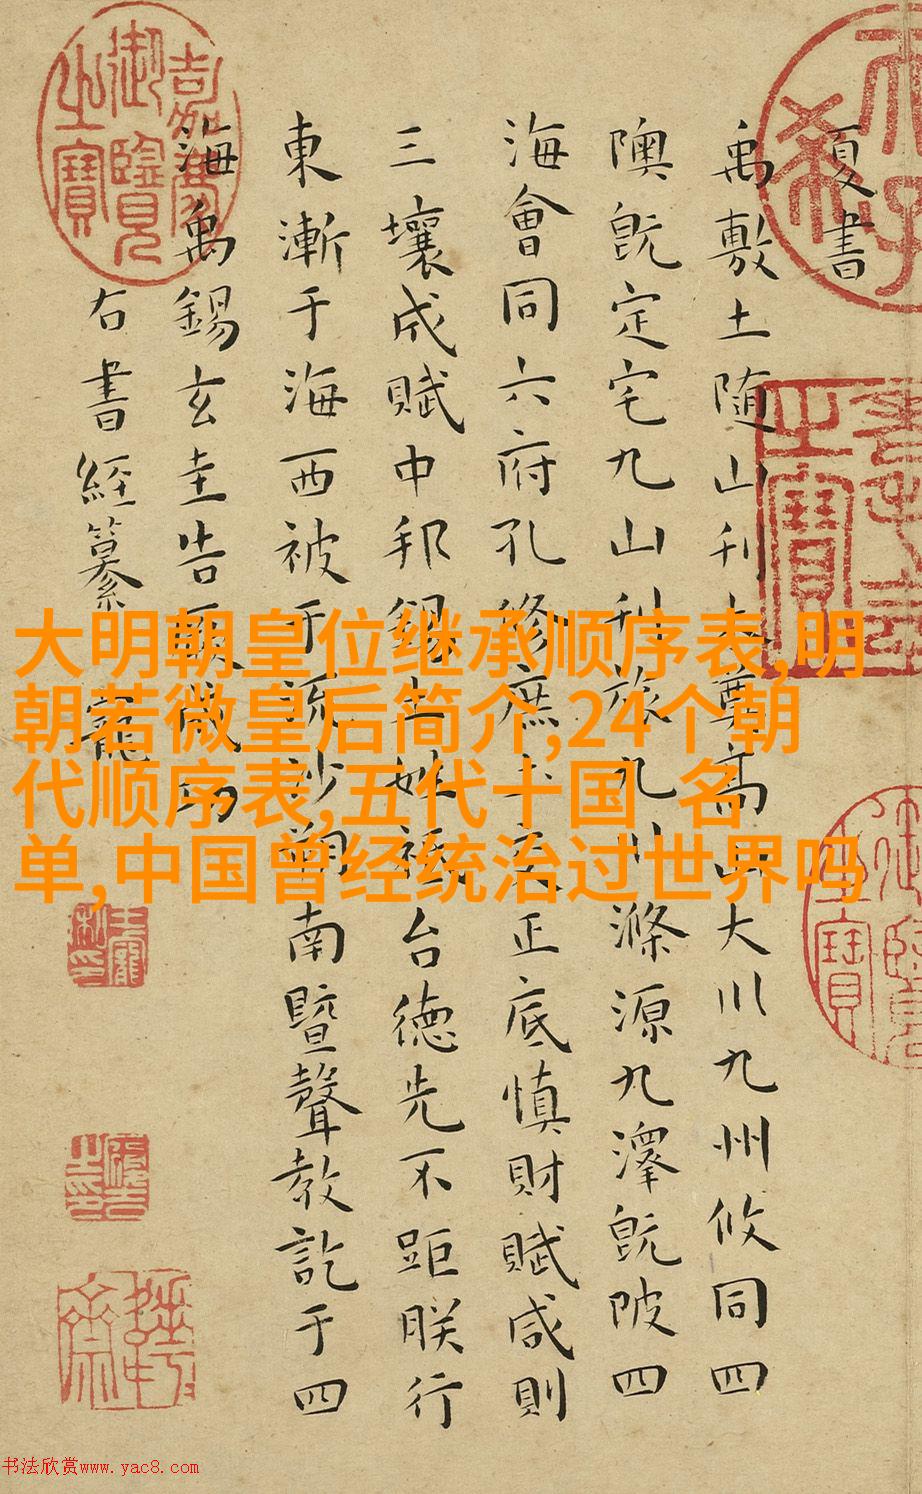 夏書
禹敷土随山刊木奠高山大川九州攸同四
隩既定宅九山刊旅九川滌源九澤既陂四
海會同六府孔修庶土交正底慎財賦咸則
三壤成賦中邦錫土姓祗台德先不距朕行
東漸于海西被于流沙朔南暨聲教訖于四
海禹錫玄圭告厥成功
右書經纂 寵
嘉慶御覽之寶
大明朝皇位继承顺序表,明
朝若微皇后简介,24个朝
代顺序表,五代十国 名
单,中国曾经统治过世界吗
书法欣赏www.yac8.com